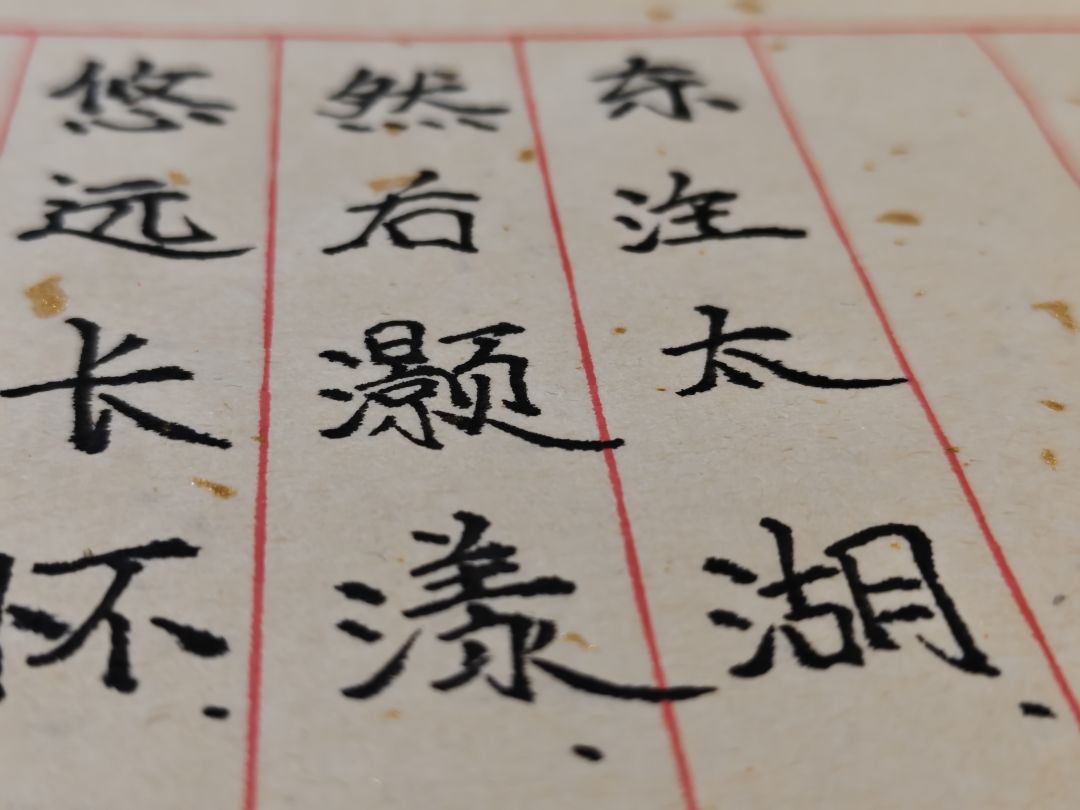 悠远长怀.
然后灏漾.
东注太湖.